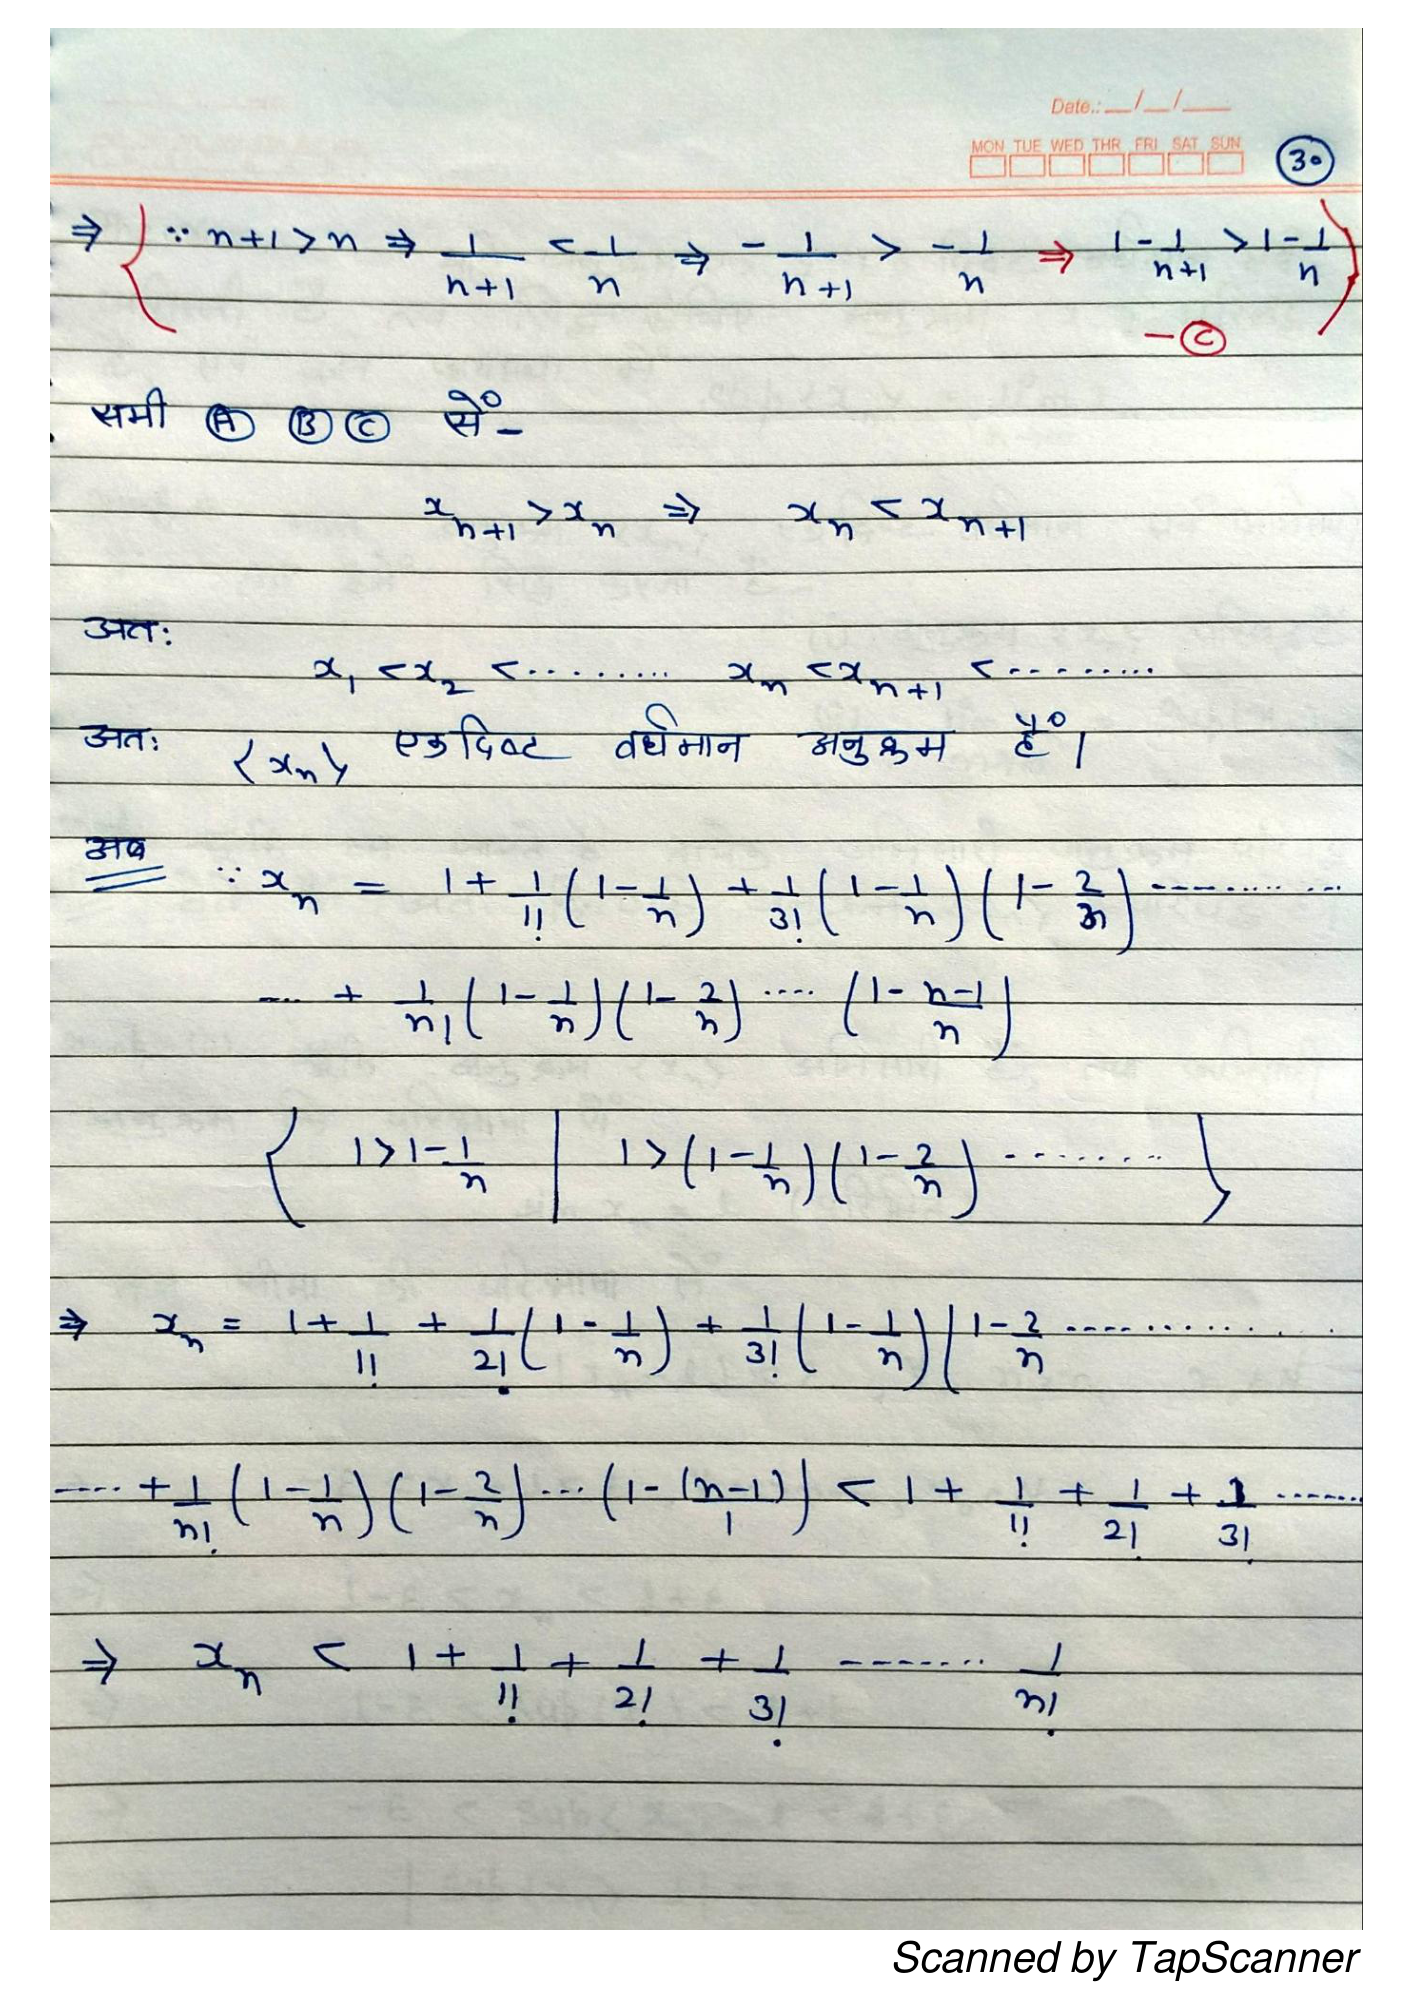 Date.: __/__/___
MON TUE WED THR FRI SAT SUN
30
⇒ { ∵ n+1 > n ⇒ 1/(n+1) < 1/n ⇒ -1/(n+1) > -1/n ⇒ 1 - 1/(n+1) > 1 - 1/n }
- Ⓒ
सभी Ⓐ Ⓑ Ⓒ सें -
x_{n+1} > x_n ⇒ x_n < x_{n+1}
अतः
x_1 < x_2 < ......... x_n < x_{n+1} < .........
अतः <x_n> एकदिष्ट वर्धमान अनुक्रम हैं।
अब ∵ x_n = 1 + 1/1! (1 - 1/n) + 1/3! (1 - 1/n) (1 - 2/n) ............
.... + 1/n! (1 - 1/n) (1 - 2/n) .... (1 - (n-1)/n)
{ 1 > 1 - 1/n | 1 > (1 - 1/n) (1 - 2/n) ........ }
⇒ x_n = 1 + 1/1! + 1/2! (1 - 1/n) + 1/3! (1 - 1/n) (1 - 2/n ............
.... + 1/n! (1 - 1/n) (1 - 2/n) ... (1 - (n-1)/1) < 1 + 1/1! + 1/2! + 1/3! ......
⇒ x_n < 1 + 1/1! + 1/2! + 1/3! ........ 1/n!
Scanned by TapScanner